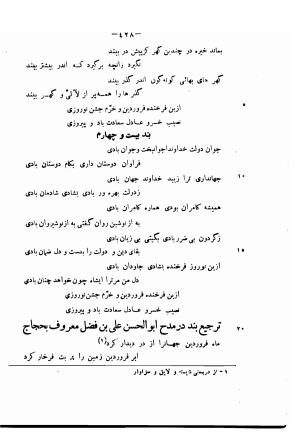 -۴۲۸-
بماند خیره در چندین گهر کزبیش در بیند
نگیرد زانچه برگیرد که اندر بیشتر بیند
گهر های بهائی گونه‌گون اندر گذر بیند
گذر ها را همسه‌پر از لآلی و گهر بیند
ازین فرخنده فروردین و خرّم جشن نوروزی
نصیب خسرو عادل سعادت باد و پیروزی
۵
بند بیست و چهارم
جوان دولت خداوندا جوانبخت و جوان بادی
فراوان دوستان داری بکام دوستان بادی
جهانداری ترا زیبد خداوند جهان بادی
۱۰
زدولت بهره ور بادی بشادی شادمان بادی
همیشه کامران بودی هماره کامران بادی
به از نوشین روان گفتی به از نوشیروان بادی
زگردون بی ضرر بادی بگیتی بی زیان بادی
بقای دین و دولت را بدست و دل ضمان بادی
۱۵
ازین نوروز فرخنده بشادی جاودان بادی
دل من مرترا ایشاه چون خواهد چنان بادی
ازین فرخنده فروردین و خرّم جشن نوروزی
نصیب خسرو عادل سعادت باد و پیروزی
ترجیع بند در مدح ابوالحسن علی بن فضل معروف بحجاج
۲۰
ماه فروردین جهانرا از در دیدار کرد (۱)
ابر فروردین زمین را پر بت فرخار کرد
۱- از در بمعنی شایسته و لایق و سزاوار